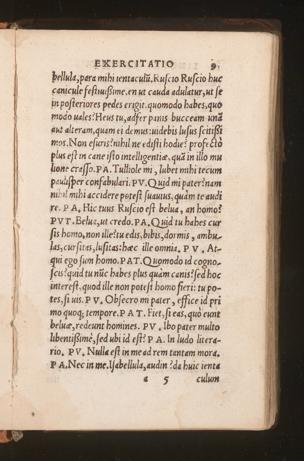 EXERCITATIO 9.
bellula, para mihi ientaculũ, Ruscio Ruscio huc
canicule festiuissime. en ut cauda adulatur, ut se
in posteriores pedes erigit. quomodo habes, quo
modo uales? Heus tu, adfer panis bucceam unã
aut alteram, quam ei demus: uidebis lusus scitissi
mos. Non esuris? nihil ne edisti hodie? profectò
plus est in cane isto intelligentiæ, quã in illo mu
lione crasso. PA. Tulliole mi, lubet mihi tecum
paulisper confabulari. PV. Quid mi pater? nam
nihil mihi accidere potest suauius, quàm te audi
re. PA, Hic tuus Ruscio est belua, an homo?
PVT. Belua, ut credo. PA, Quid tu habes cur
sis homo, non ille? tu edis, bibis, dormis, ambu-
las, cursitas, lusitas: hæc ille omnia. PV, At-
qui ego sum homo. PAT. Quomodo id cogno-
scis? quid tu nũc habes plus quàm canis? sed hoc
interest, quod ille non potest homo fieri: tu po-
tes, si uis. PV. Obsecro mi pater, effice id pri
mo quoq; tempore. PAT. Fiet, si eas, quò eunt
beluæ, redeunt homines. PV. Ibo pater multo
libentissimè, sed ubi id est? PA. In ludo litera-
rio. PV. Nulla est in me ad rem tantam mora.
PA. Nec in me. Isabellula, audin? da huic ienta
a 5 culum